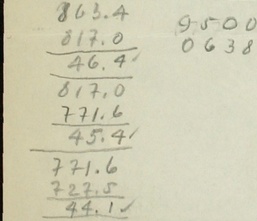 863.4
817.0
46.4✓
817.0
771.6
45.4✓
771.6
727.5
44.1✓
9500
0638